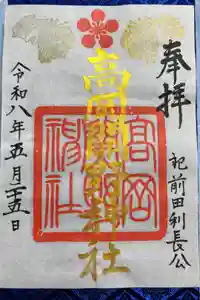 奉拝
祀前田利長公
高岡關野神社
高岡關野神社
令和八年五月十五日